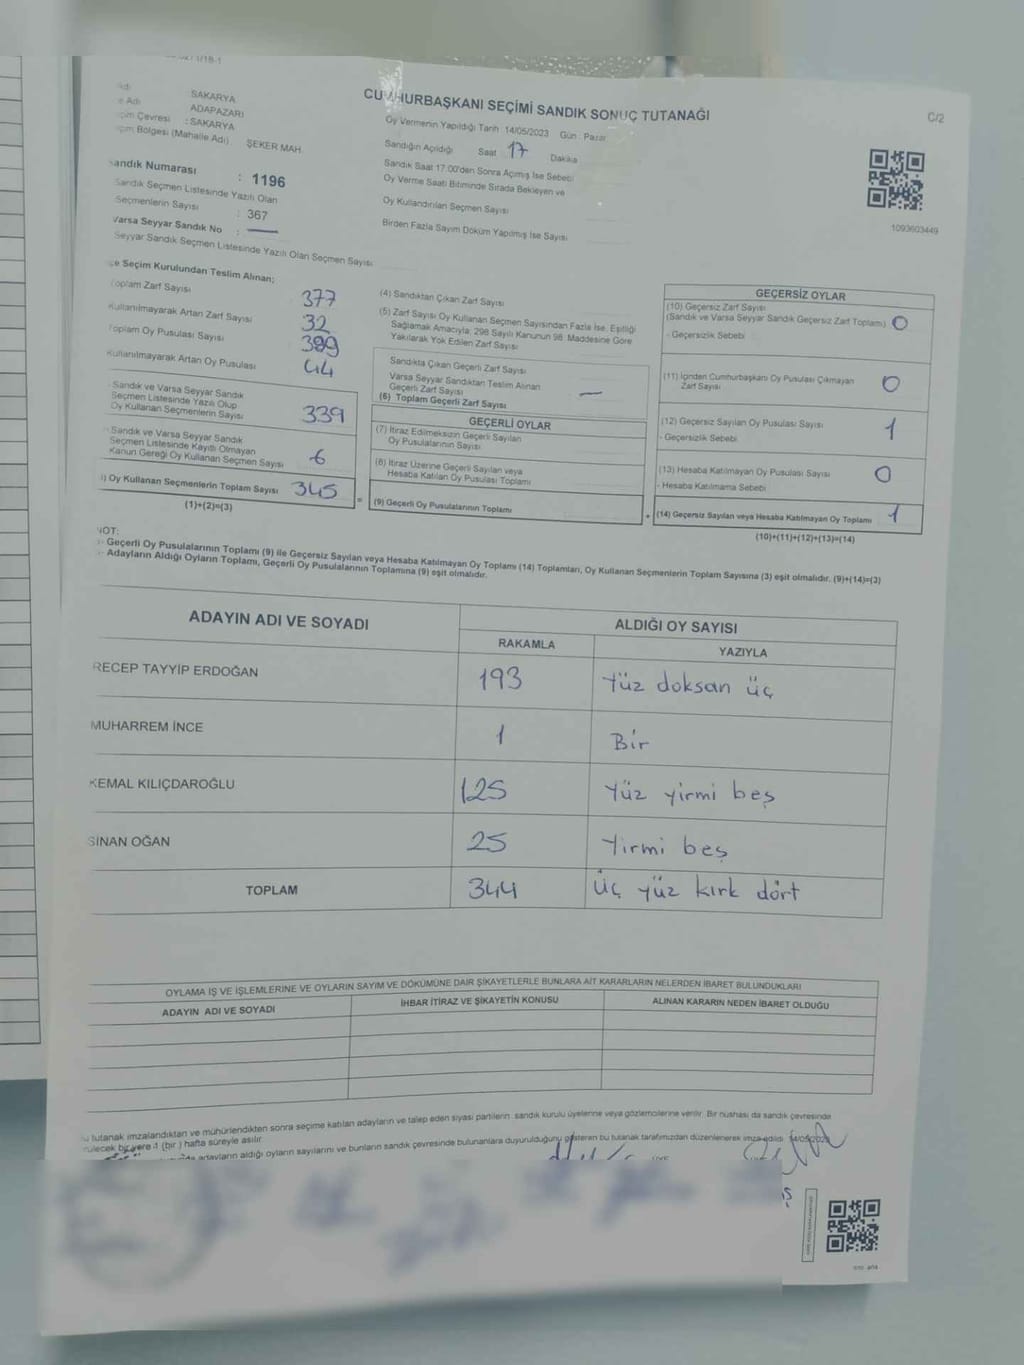 CUMHURBAŞKANI SEÇİMİ SANDIK SONUÇ TUTANAĞI
C/2
SAKARYA
ADAPAZARI
Seçim Çevresi : SAKARYA
Bölgesi (Mahalle Adı) ŞEKER MAH.
Sandık Numarası : 1196
Sandık Seçmen Listesinde Yazılı Olan
Seçmenlerin Sayısı : 367
Varsa Seyyar Sandık No : —
Seyyar Sandık Seçmen Listesinde Yazılı Olan Seçmen Sayısı
Oy Vermenin Yapıldığı Tarih 14/05/2023 Gün : Pazar
Sandığın Açıldığı Saat 17 Dakika
Sandık Saat 17:00'den Sonra Açılmış İse Sebebi
Oy Verme Saati Bitiminde Sırada Bekleyen ve
Oy Kullandırılan Seçmen Sayısı
Birden Fazla Sayım Döküm Yapılmış İse Sayısı
1093603449
İlçe Seçim Kurulundan Teslim Alınan;
Toplam Zarf Sayısı 377
Kullanılmayarak Artan Zarf Sayısı 32
Toplam Oy Pusulası Sayısı 389
Kullanılmayarak Artan Oy Pusulası 44
Sandık ve Varsa Seyyar Sandık
Seçmen Listesinde Yazılı Olup
Oy Kullanan Seçmenlerin Sayısı 339
Sandık ve Varsa Seyyar Sandık
Seçmen Listesinde Kayıtlı Olmayan
Kanun Gereği Oy Kullanan Seçmen Sayısı 6
Oy Kullanan Seçmenlerin Toplam Sayısı 345
(1)+(2)=(3)
(4) Sandıktan Çıkan Zarf Sayısı
(5) Zarf Sayısı Oy Kullanan Seçmen Sayısından Fazla İse, Eşitliği
Sağlamak Amacıyla, 298 Sayılı Kanunun 98. Maddesine Göre
Yakılarak Yok Edilen Zarf Sayısı
Sandıkta Çıkan Geçerli Zarf Sayısı
Varsa Seyyar Sandıktan Teslim Alınan
Geçerli Zarf Sayısı —
(6) Toplam Geçerli Zarf Sayısı
GEÇERLİ OYLAR
(7) İtiraz Edilmeksizin Geçerli Sayılan
Oy Pusulalarının Sayısı
(8) İtiraz Üzerine Geçerli Sayılan veya
Hesaba Katılan Oy Pusulası Toplamı
= (9) Geçerli Oy Pusulalarının Toplamı
GEÇERSİZ OYLAR
(10) Geçersiz Zarf Sayısı
(Sandık ve Varsa Seyyar Sandık Geçersiz Zarf Toplamı) 0
- Geçersizlik Sebebi
(11) İçinden Cumhurbaşkanı Oy Pusulası Çıkmayan
Zarf Sayısı 0
(12) Geçersiz Sayılan Oy Pusulası Sayısı 1
- Geçersizlik Sebebi
(13) Hesaba Katılmayan Oy Pusulası Sayısı 0
- Hesaba Katılmama Sebebi
+ (14) Geçersiz Sayılan veya Hesaba Katılmayan Oy Toplamı 1
(10)+(11)+(12)+(13)=(14)
NOT:
- Geçerli Oy Pusulalarının Toplamı (9) ile Geçersiz Sayılan veya Hesaba Katılmayan Oy Toplamı (14) Toplamları, Oy Kullanan Seçmenlerin Toplam Sayısına (3) eşit olmalıdır. (9)+(14)=(3)
- Adayların Aldığı Oyların Toplamı, Geçerli Oy Pusulalarının Toplamına (9) eşit olmalıdır.
ADAYIN ADI VE SOYADI
ALDIĞI OY SAYISI
RAKAMLA YAZIYLA
RECEP TAYYİP ERDOĞAN 193 Yüz doksan üç
MUHARREM İNCE 1 Bir
KEMAL KILIÇDAROĞLU 125 Yüz yirmi beş
SİNAN OĞAN 25 Yirmi beş
TOPLAM 344 üç yüz kırk dört
OYLAMA İŞ VE İŞLEMLERİNE VE OYLARIN SAYIM VE DÖKÜMÜNE DAİR ŞİKAYETLERLE BUNLARA AİT KARARLARIN NELERDEN İBARET BULUNDUKLARI
ADAYIN ADI VE SOYADI
İHBAR İTİRAZ VE ŞİKAYETİN KONUSU
ALINAN KARARIN NEDEN İBARET OLDUĞU
tutanak imzalandıktan ve mühürlendikten sonra seçime katılan adayların ve talep eden siyasi partilerin sandık kurulu üyelerine veya gözlemcilerine verilir. Bir nüshası da sandık çevresinde
bir yere 1 (bir) hafta süreyle asılır.
adayların aldığı oyların sayılarını ve bunların sandık çevresinde bulunanlara duyurulduğunu gösteren bu tutanak tarafımızdan düzenlenerek imza edildi. 14/05/2023